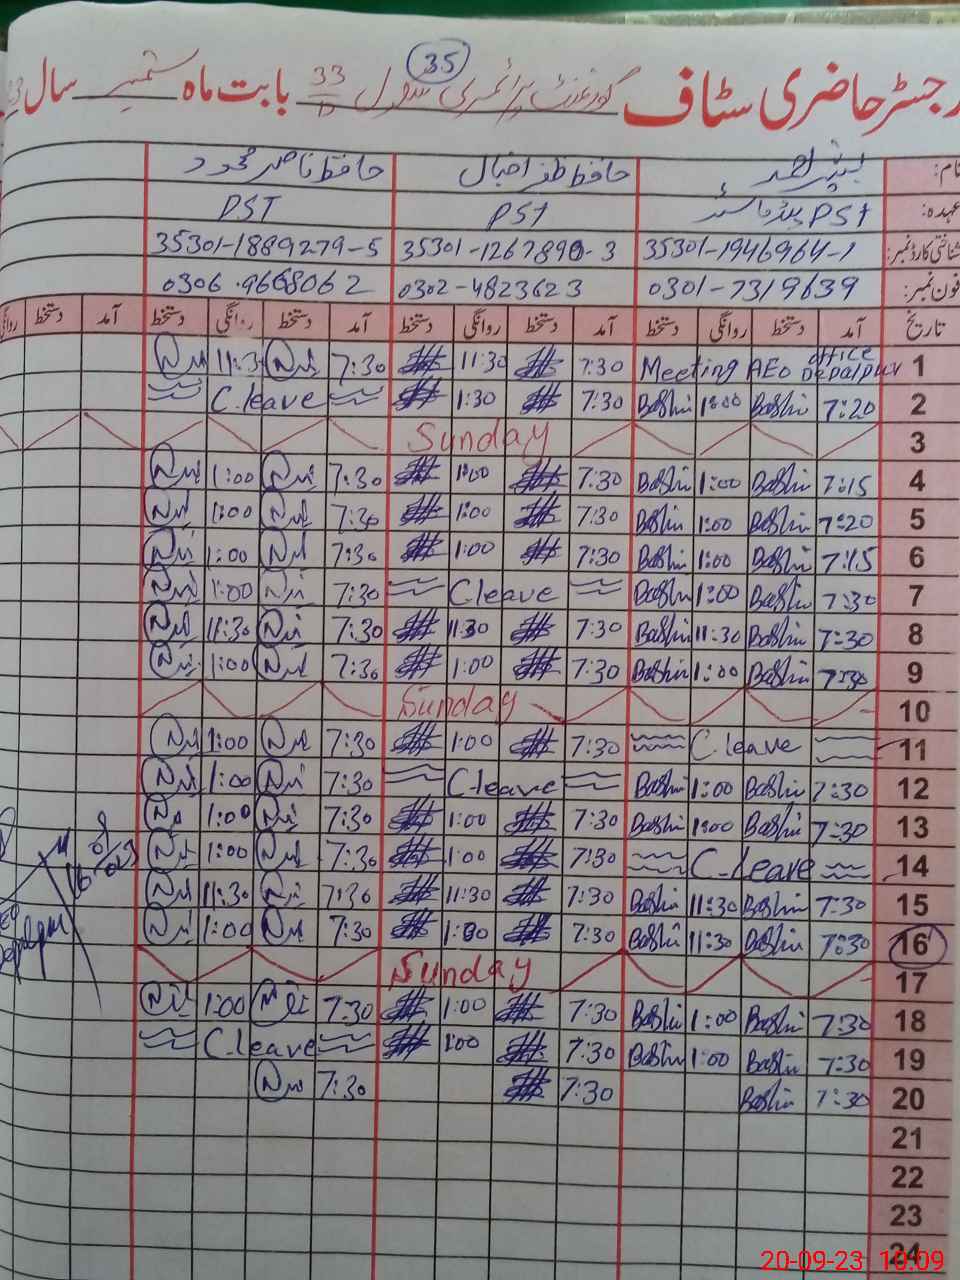 رجسٹر حاضری سٹاف گورنمنٹ پرائمری سکول 33/D بابت ماہ ستمبر سال
35
نام: بشیر احمد حافظ ظفر اقبال حافظ ناصر محمود
عہدہ: PST ہیڈ ماسٹر PST PST
شناختی کارڈ نمبر: 35301-1946964-1 35301-1267890-3 35301-1889279-5
فون نمبر: 0301-7319639 0302-4823623 0306-9668062
تاریخ آمد دستخط روانگی دستخط آمد دستخط روانگی دستخط آمد دستخط روانگی دستخط آمد دستخط روانگی
1 Meeting AEO office Depalpur 7:30 11:30 7:30 11:3
2 7:20 Bashir 1:00 Bashir 7:30 1:30 C.leave
3 Sunday
4 7:15 Bashir 1:00 Bashir 7:30 1:00 7:30 1:00
5 7:20 Bashir 1:00 Bashir 7:30 1:00 7:30 1:00
6 7:15 Bashir 1:00 Bashir 7:30 1:00 7:30 1:00
7 7:30 Bashir 1:00 Bashir C.leave 7:30 1:00
8 7:30 Bashir 11:30 Bashir 7:30 11:30 7:30 11:30
9 7:30 Bashir 1:00 Bashir 7:30 1:00 7:30 1:00
10 Sunday
11 C.leave 7:30 1:00 7:30 1:00
12 7:30 Bashir 1:00 Bashir C.leave 7:30 1:00
13 7:30 Bashir 1:00 Bashir 7:30 1:00 7:30 1:00
14 C.leave 7:30 1:00 7:30 1:00
15 7:30 Bashir 11:30 Bashir 7:30 11:30 7:30 11:30
16 7:30 Bashir 11:30 Bashir 7:30 1:00 7:30 1:00
17 Sunday
18 7:30 Bashir 1:00 Bashir 7:30 1:00 7:30 1:00
19 7:30 Bashir 1:00 Bashir 7:30 1:00 C.leave
20 7:30 Bashir 7:30 7:30
21
22
23
24
20-09-23 10:09